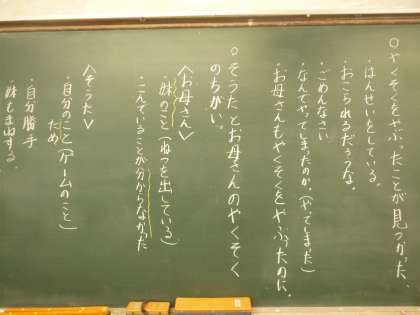 ○やくそくをやぶったことが見つかった、
・はんせいをしている。
・おこられるだろうな。
・ごめんなさい
・なんでやってしまったのか。(やってしまった)
・お母さんもやくそくをやぶったのに。
○そうたとお母さんのやくそく
のちがい。
〈お母さん〉
・妹のこと(ねつを出している)
・こんでいることが分からなかった
〈そうた〉
・自分のこと(ゲームのこと)
ため
・自分勝手
・妹もまねする。